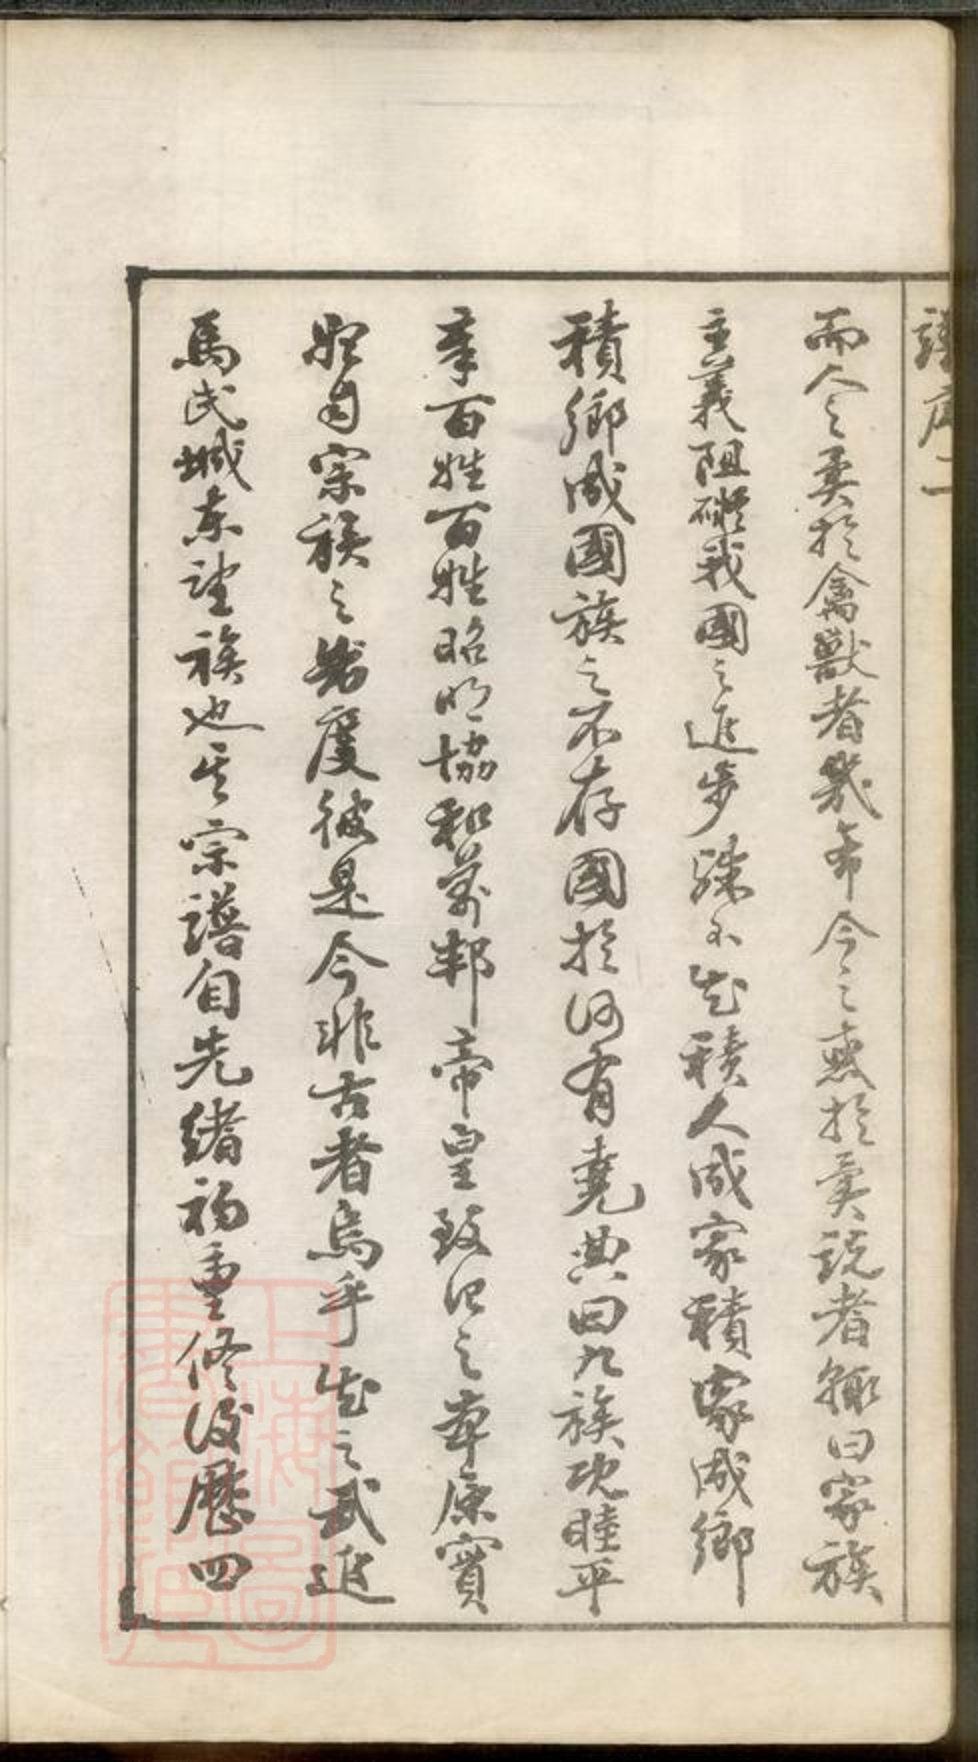 譜序二
而人之異於禽獸者幾希今之惑於異說者輒曰家族
主義阻礙我國之進步殊不知積人成家積家成鄉
積鄉成國族之不存國於何有堯典曰九族既睦平
章百姓百姓昭明協和萬邦帝皇致治之本原實
始自宗族之制度彼是今非古者烏乎知之武進
馬氏城東望族也其宗譜自光緒初重修後歷四
上海圖書館藏